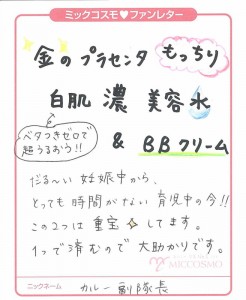 ミックコスモ♥ファンレター
金のプラセンタ もっちり
白肌 濃 美容水
ベタつきゼロで
超うるおう!!
& BBクリーム
だる〜い妊娠中から、
とっても時間がない育児中の今!!
この2つは重宝してます。
1つで済むので大助かりです。
MICCOSMO
ニックネーム
カレー副隊長